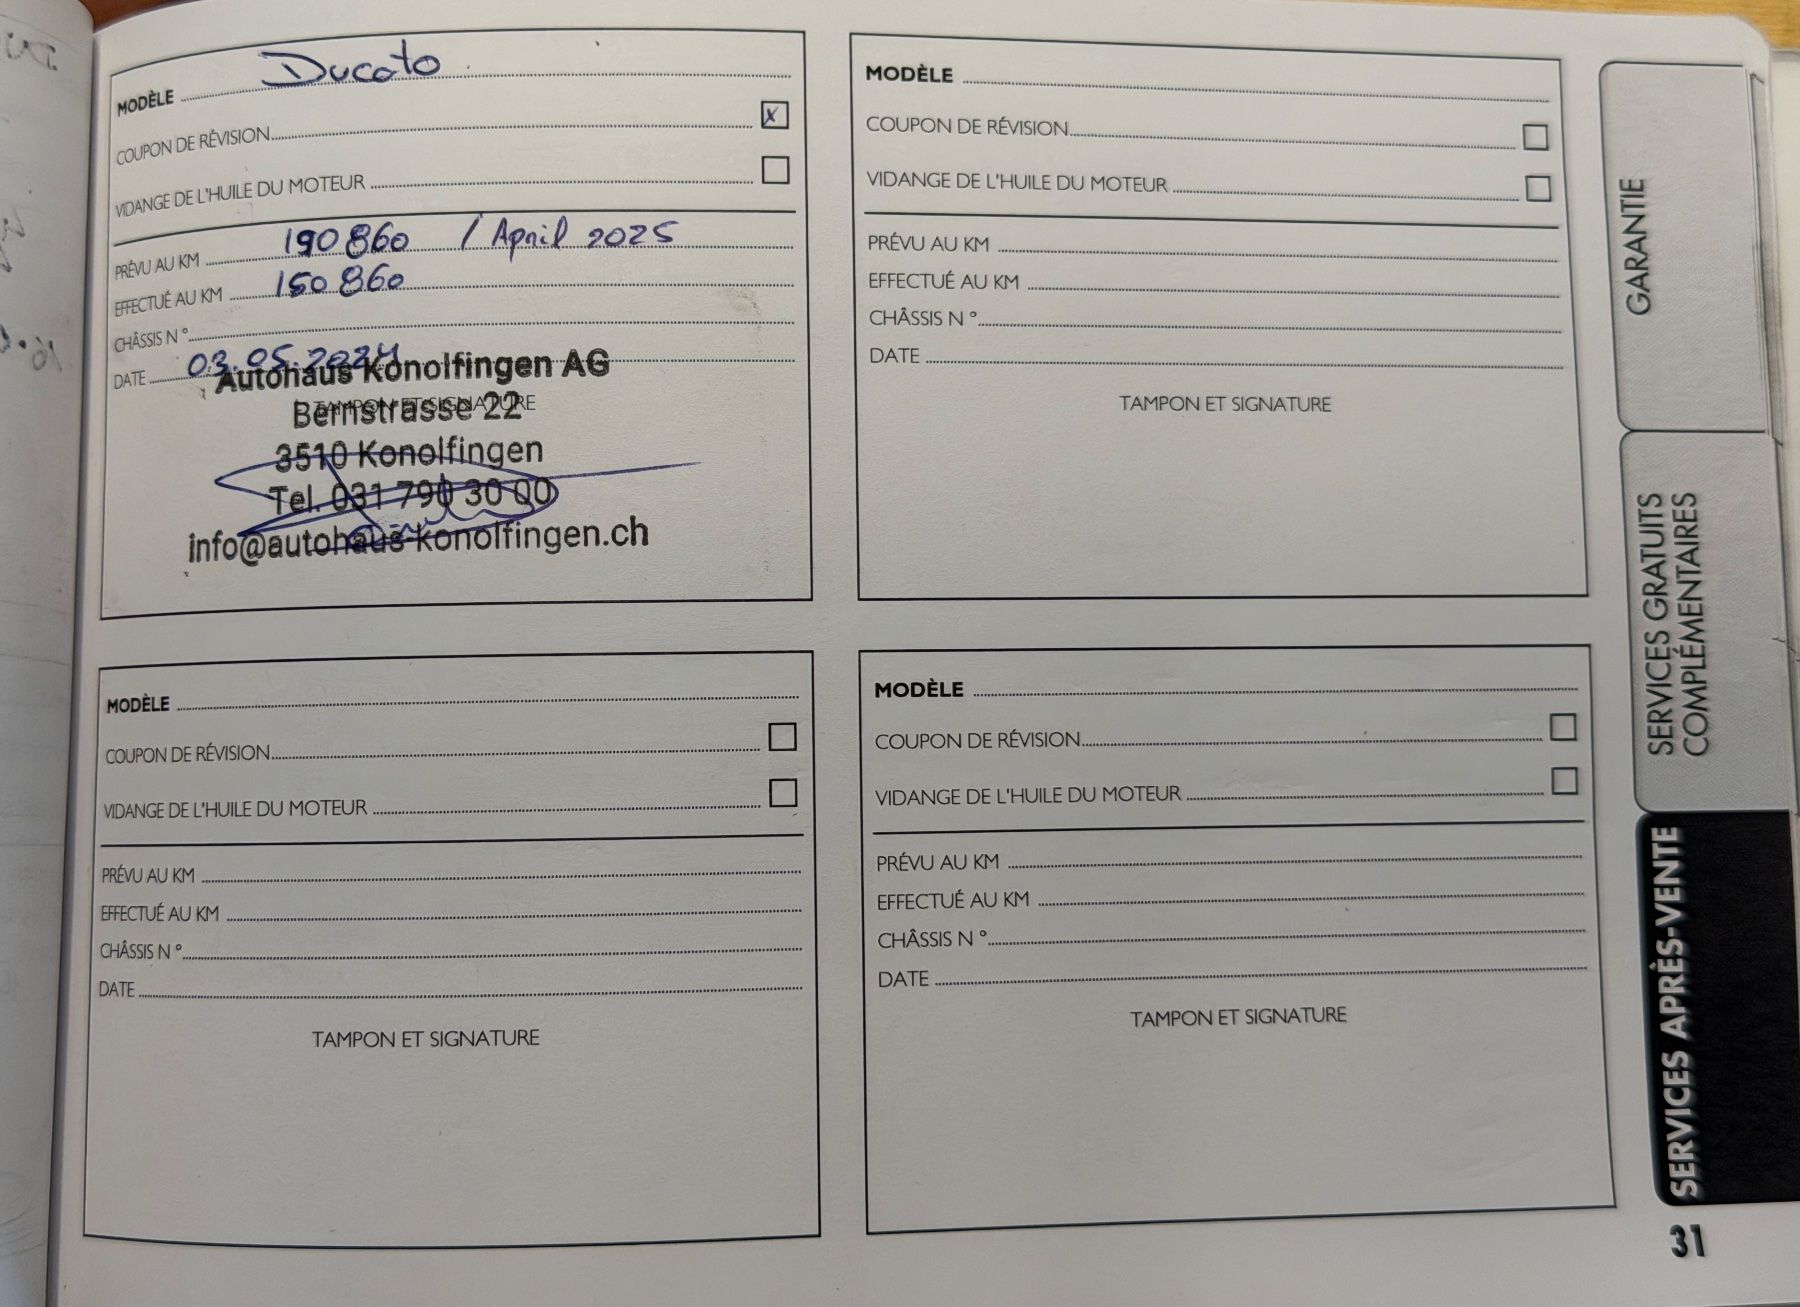 MODÈLE Ducato
COUPON DE RÉVISION X
VIDANGE DE L'HUILE DU MOTEUR
PRÉVU AU KM 190 860 / April 2025
EFFECTUÉ AU KM 150 860
CHÂSSIS N°
DATE 03.05.2024
Autohaus Konolfingen AG
TAMPON ET SIGNATURE
Bernstrasse 22
3510 Konolfingen
Tel. 031 790 30 00
info@autohaus-konolfingen.ch
MODÈLE
COUPON DE RÉVISION
VIDANGE DE L'HUILE DU MOTEUR
PRÉVU AU KM
EFFECTUÉ AU KM
CHÂSSIS N°
DATE
TAMPON ET SIGNATURE
MODÈLE
COUPON DE RÉVISION
VIDANGE DE L'HUILE DU MOTEUR
PRÉVU AU KM
EFFECTUÉ AU KM
CHÂSSIS N°
DATE
TAMPON ET SIGNATURE
MODÈLE
COUPON DE RÉVISION
VIDANGE DE L'HUILE DU MOTEUR
PRÉVU AU KM
EFFECTUÉ AU KM
CHÂSSIS N°
DATE
TAMPON ET SIGNATURE
GARANTIE
SERVICES GRATUITS
COMPLÉMENTAIRES
SERVICES APRÈS-VENTE
31